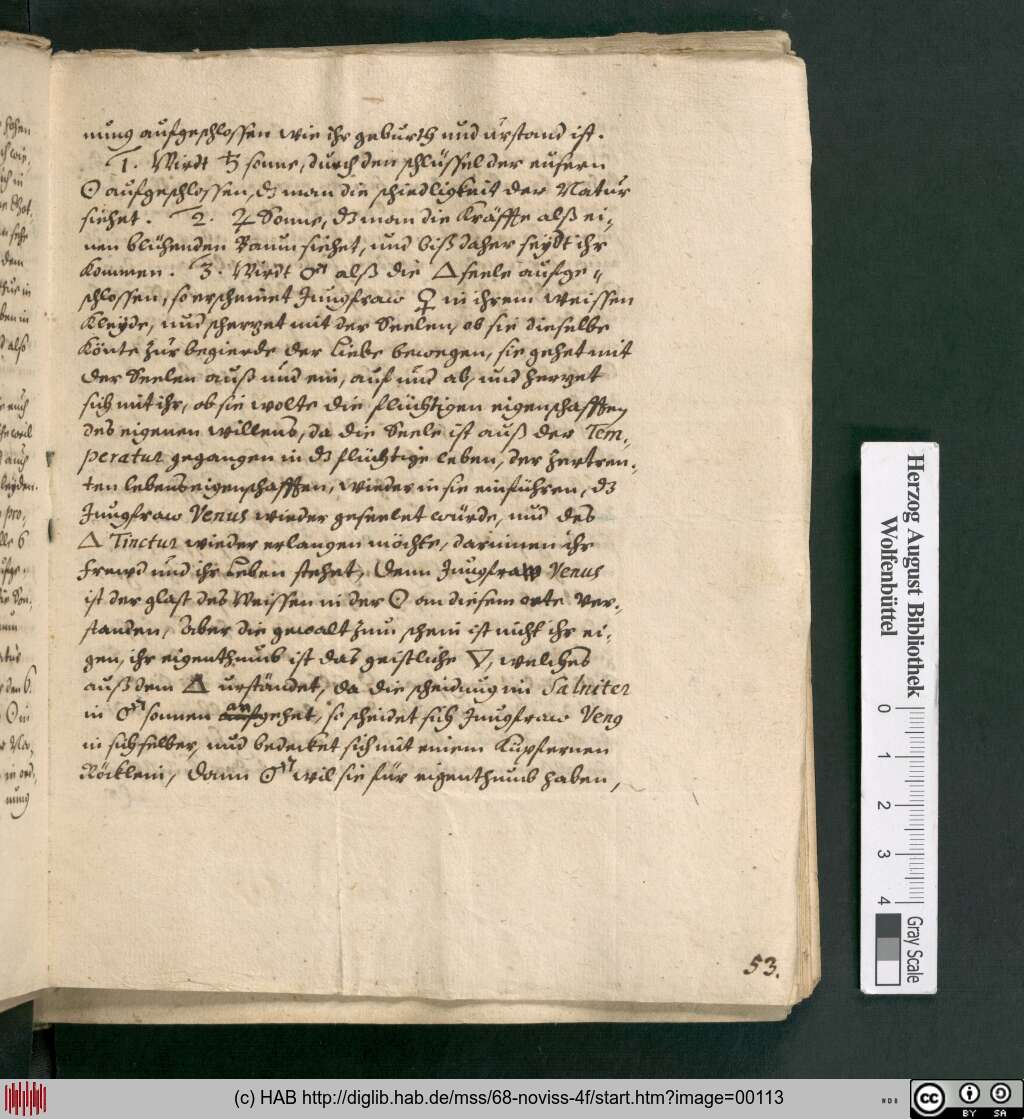 nung aufgeschlossen wie ihr geburth und urstand ist.
1. Wirdt ♄ sonne, durch den schlüssel der eusern
☉ aufgeschlossen, dz man die schiedligkeit der Natur
siehet. 2. ♃ Sonne, dz man die Kräffte alß ei,
nen blühenden Baum siehet, und biß daher seydt ihr
kommen. 3. Wirdt ♂ alß die 🜂 seele aufge,,
schlossen, so erscheinet Jungfraw ♀ in ihrem weissen
Kleyde, und scherzet mit der Seelen, ob sie dieselbe
könte zur begierde der Liebe bewegen, sie gehet mit
der Seelen auß und ein, auf und ab, und herzet
sich mit ihr, ob sie wolte die flüchtigen eigenschafften
des eigenen willens, da die Seele ist auß der Tem,
peratur gegangen in dz flüchtige leben, der zertren,
ten lebens eigenschafften, wieder in sie einführen, dz
Jungfraw Venus wieder geseelet würde, und des
🜂 Tinctur wieder erlangen möchte, darinnen ihr
frewd und ihr Leben stehet, denn Jungfraw Venus
ist der glast des Weissen in der ☉ an diesem orte ver,
standen, Aber die gewalt zum schein ist nicht ihr ei,
gen, ihr eigenthumb ist das geistliche 🜄, welches
auß dem 🜂 urständet, da die scheidung im Salniter
in ♂ sonnen angehet, so scheidet sich Jungfraw Venus
in sich selber, und bedecket sich mit einem Kupfernen
Röcklein, dann ♂ wil sie für eigenthumb haben,
53.
Herzog August Bibliothek
Wolfenbüttel
0 1 2 3 4
Gray Scale
(c) HAB http://diglib.hab.de/mss/68-noviss-4f/start.htm?image=00113
cc BY SA